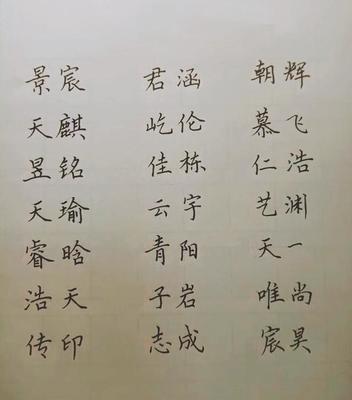 景宸 君涵 朝辉
天麒 屹伦 慕飞
昱铭 佳栋 仁浩
天瑜 云宇 艺渊
睿晗 青阳 天一
浩天 子岩 唯尚
传印 志成 宸昊